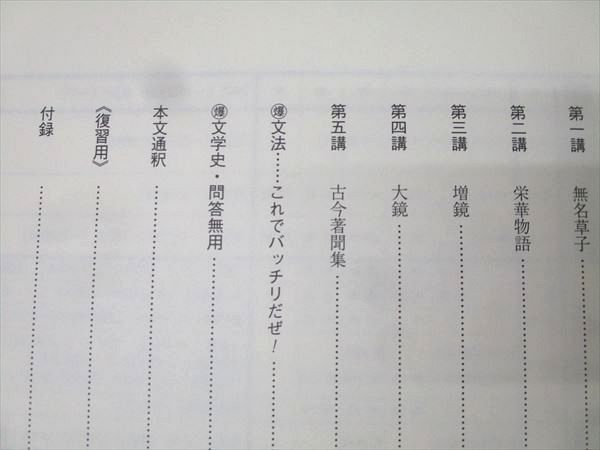 第一講 無名草子……
第二講 栄華物語……
第三講 増鏡……
第四講 大鏡……
第五講 古今著聞集……
㊙文法……これでバッチリだぜ!……
文学史・問答無用……
本文通釈……
《復習用》……
付録……